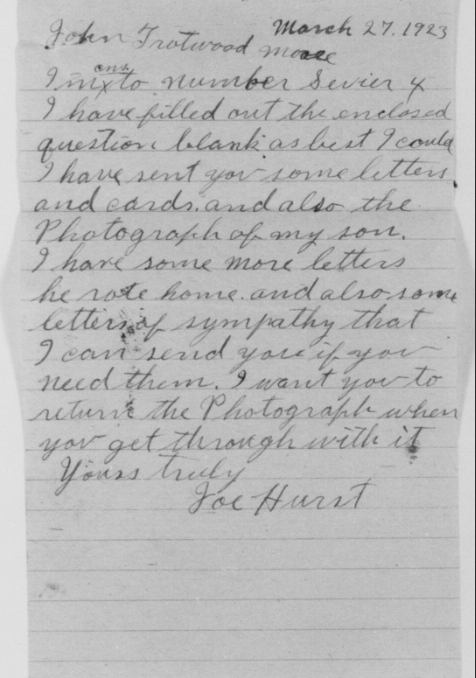 March 27. 1923
John Trotwood Moore
I in ans to number Sevier x
I have filled out the enclosed
question blank as best I could
I have sent you some letters
and cards. and also the
Photograph of my son.
I have some more letters
he rote home. and also some
letters of sympathy that
I can send you if you
need them. I want you to
return the Photograph when
you get through with it
Yours truly
Joe Hurst